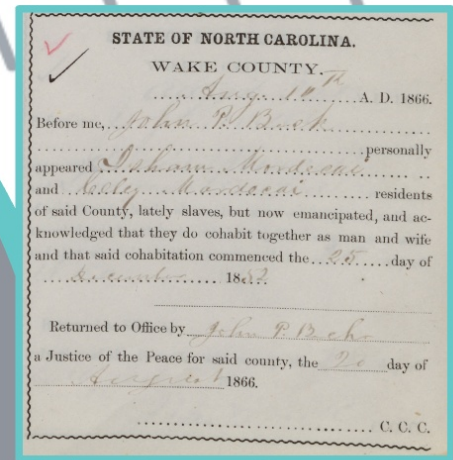 STATE OF NORTH CAROLINA.
WAKE COUNTY.
Aug. 10th A. D. 1866.
Before me, John P. Buck
personally
appeared Isham Mordecai
and Mordecai residents
of said County, lately slaves, but now emancipated, and ac-
knowledged that they do cohabit together as man and wife
and that said cohabitation commenced the 25 day of
December 1852
Returned to Office by John P. Buck
a Justice of the Peace for said county, the day of
August 1866.
C. C. C.